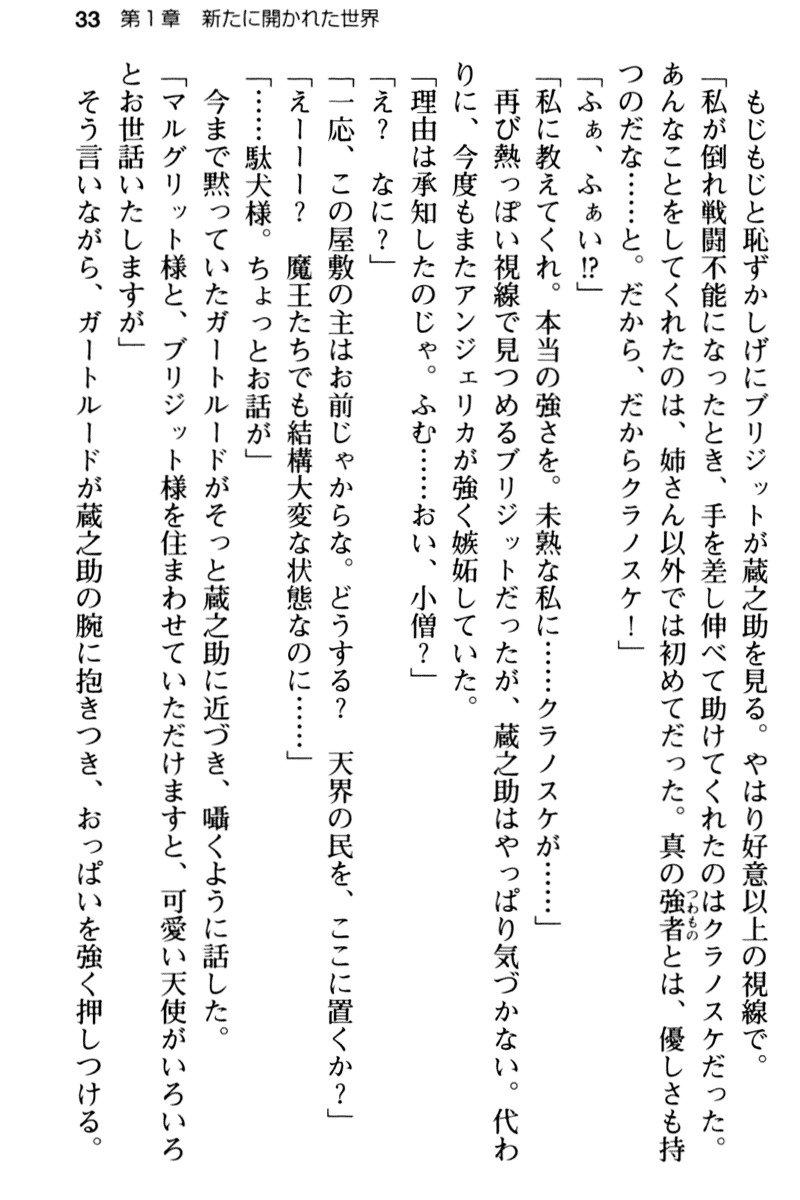 33 第1章　新たに開かれた世界
もじもじと恥ずかしげにブリジットが蔵之助を見る。やはり好意以上の視線で。
「私が倒れ戦闘不能になったとき、手を差し伸べて助けてくれたのはクラノスケだった。
あんなことをしてくれたのは、姉さん以外では初めてだった。真の強者とは、優しさも持
つわもの
つのだな……と。だから、だからクラノスケ！」
「ふぁ、ふぁい!?」
「私に教えてくれ。本当の強さを。未熟な私に……クラノスケが……」
再び熱っぽい視線で見つめるブリジットだったが、蔵之助はやっぱり気づかない。代わ
りに、今度もまたアンジェリカが強く嫉妬していた。
「理由は承知したのじゃ。ふむ……おい、小僧？」
「え？　なに？」
「一応、この屋敷の主はお前じゃからな。どうする？　天界の民を、ここに置くか？」
「えーーー？　魔王たちでも結構大変な状態なのに……」
「……駄犬様。ちょっとお話が」
今まで黙っていたガートルードがそっと蔵之助に近づき、囁くように話した。
「マルグリット様と、ブリジット様を住まわせていただけますと、可愛い天使がいろいろ
とお世話いたしますが」
そう言いながら、ガートルードが蔵之助の腕に抱きつき、おっぱいを強く押しつける。